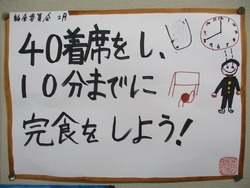 給食委員会 2月
40着席をし、
10分までに
完食をしよう!